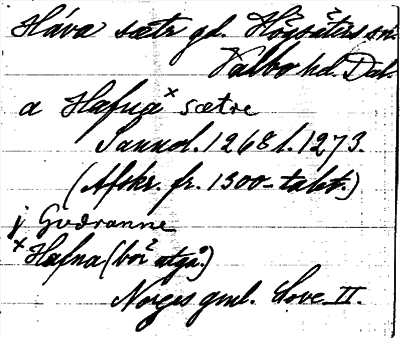 Háva sætr gd. Högsäters sn.
Valbo hd. Dal.
a Hafna× sætre
Sannol. 1268 l. 1273.
(Afskr. fr. 1300-talet.)
j Gudranne
× Hafna (bör utgå.)
Norges gml. Love II.